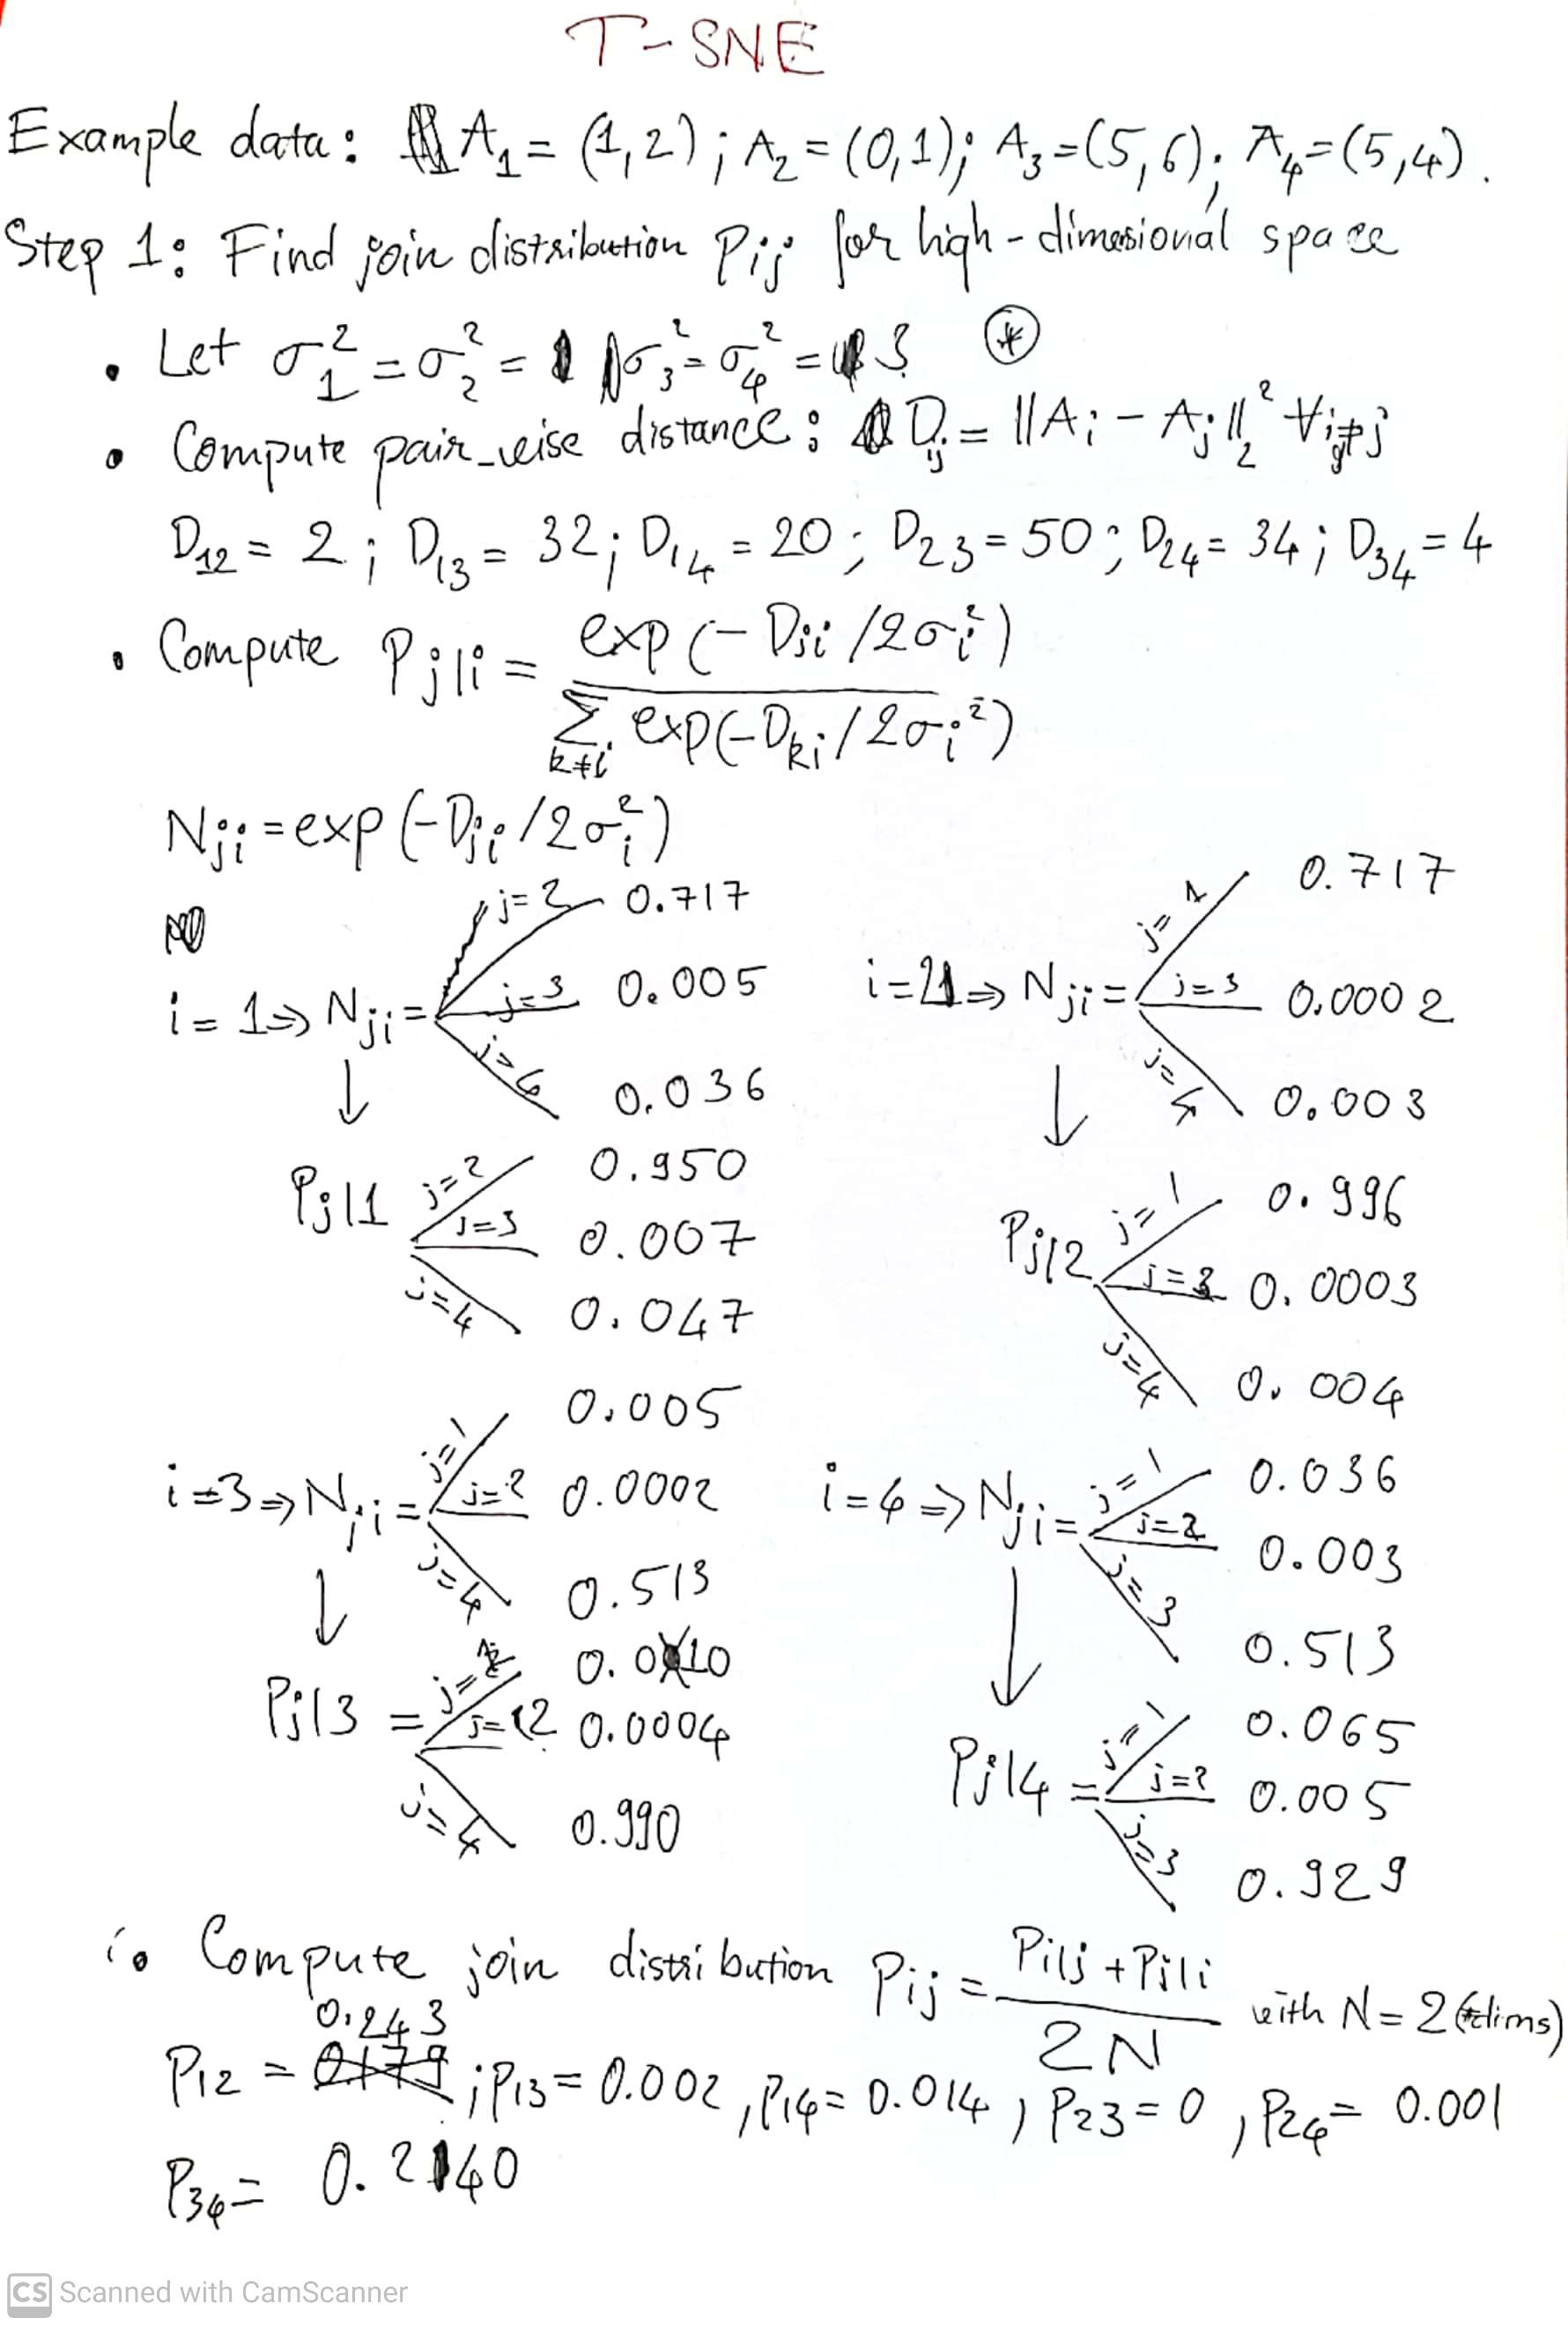 T-SNE
Example data: A₁ = (1,2); A₂ = (0,1); A₃ = (5,6); A₄ = (5,4).
Step 1: Find join distribution Pij for high-dimesional space
• Let σ₁² = σ₂² = σ₃² = σ₄² = 3 ⊛
• Compute pair-weise distance: Dij = ||Ai - Aj||₂² ∀i≠j
D₁₂ = 2; D₁₃ = 32; D₁₄ = 20; D₂₃ = 50; D₂₄ = 34; D₃₄ = 4
• Compute Pj|i = exp(-Dji/2σi²) / Σk≠i exp(-Dki/2σi²)
Nji = exp(-Dji/2σi²)
i=1 => Nji = j=2 0.717
j=3 0.005
j=4 0.036
i=2 => Nji = j=1 0.717
j=3 0.0002
j=4 0.003
↓
Pj|1 j=2 0.950
j=3 0.007
j=4 0.047
↓
Pj|2 j=1 0.996
j=3 0.0003
j=4 0.004
i=3 => Nji = j=1 0.005
j=2 0.0002
j=4 0.513
i=4 => Nji = j=1 0.036
j=2 0.003
j=3 0.513
↓
Pj|3 = j=1 0.010
j=2 0.0004
j=4 0.990
↓
Pj|4 = j=1 0.065
j=2 0.005
j=3 0.929
• Compute join distribution Pij = (Pi|j + Pj|i) / 2N with N = 2 (dims)
P₁₂ = 0.243; P₁₃ = 0.002, P₁₄ = 0.014, P₂₃ = 0, P₂₄ = 0.001
P₃₄ = 0.240
CS Scanned with CamScanner